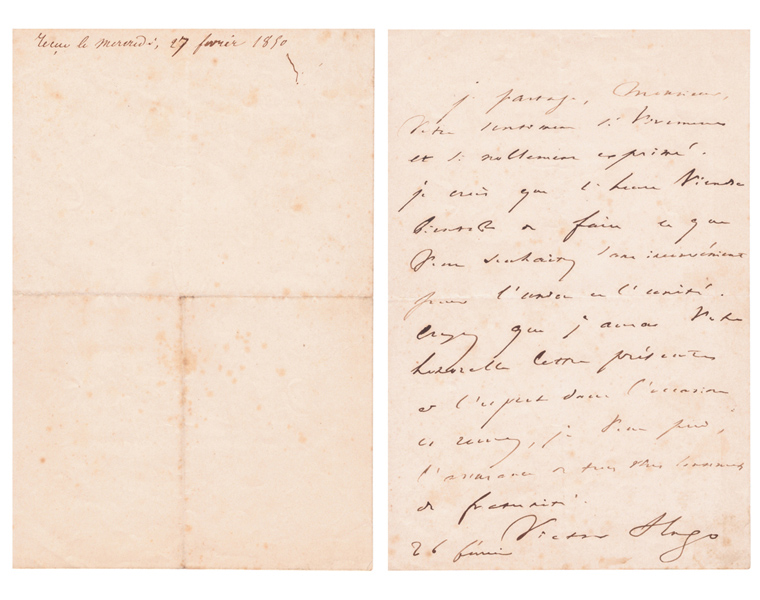 Reçu le mercredi, 27 fevrier 1850
je partage, Monsieur,
Votre sentiment si
et si noblement exprimé.
je crois que l'heure Viendra
bientôt de faire ce que
Vous souhaitez sans inconvénient
pour l'ordre et l'unité.
Croyez que j'aurai Votre
lettre présente
à l'esprit dans l'occasion
et recevez, je Vous prie,
l'assurance de mes
de fraternité.
Victor Hugo
26 février